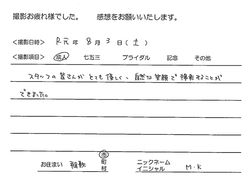 撮影お疲れ様でした。 感想をお願いいたします。
<撮影日時> R元年 8月 3日 (土)
<撮影項目> 成人 七五三 ブライダル 記念 その他
スタッフの皆さんがとても優しく、自然な笑顔で撮影することが
できました。
お住まい 市 町 村 ニックネーム イニシャル M・K